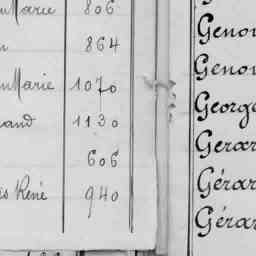 Marie 806
864
Marie 1070
and 1130
606
René 940
Geno
Geno
Georg
Gerar
Gérar
Gérar